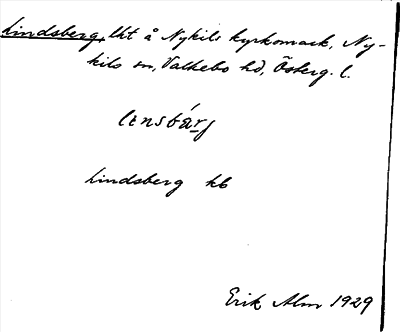 Lindsberg, lht å Nykils kyrkomark, Ny-
kils sn, Valkebo hd, Österg. l.
lɪnsbárj
Lindsberg kb
Erik Alm 1929